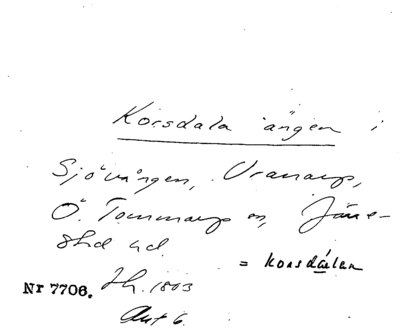 Korsdala ängen i
Sjövången, Vranarp,
Ö. Tommarp sn, Järre-
stad hd.
= Korsdalen
Nr 7706. Sk. 1803
Akt 6.